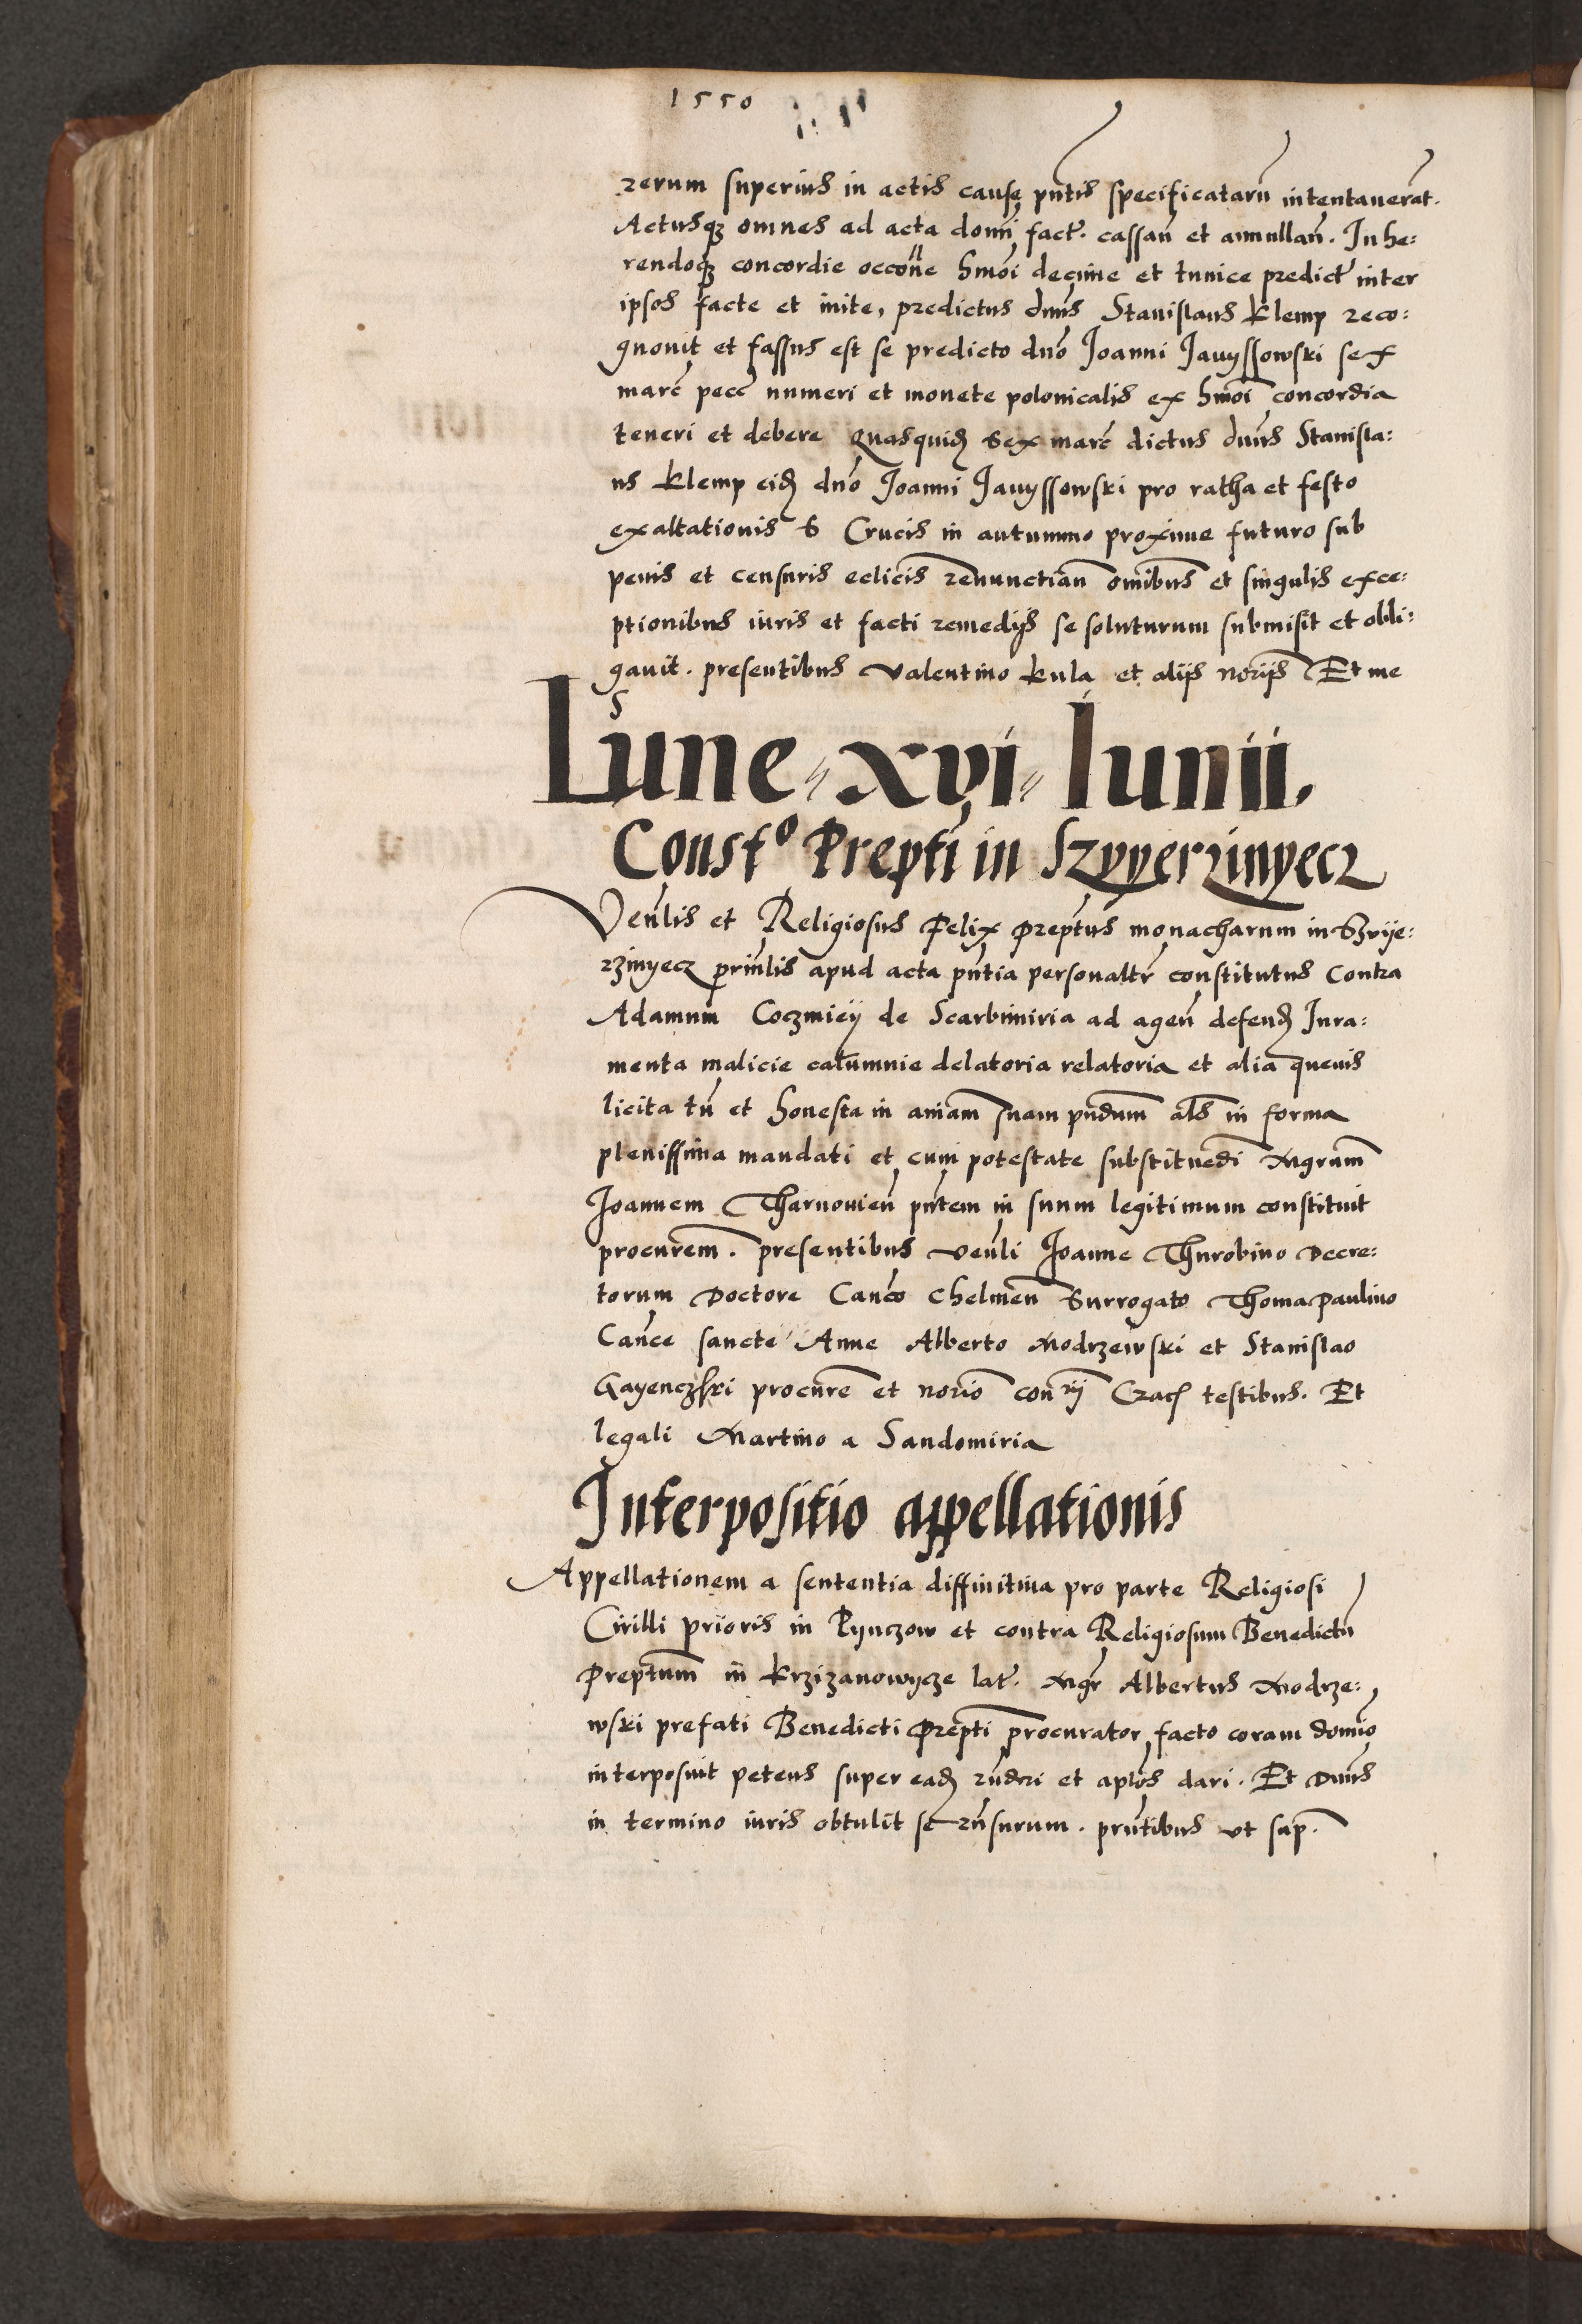 1550
rerum superius in actis cause pñtis specificatarũ intentauerãt.
Actusqȝ omnes ad acta domĩ fact̃. cassañ et annullañ. Inhe:
rendoqȝ concordie occõne hmõi decime et tunice predict̃ inter
ipsos facte et inite, predictus dñus Stanislaus Klemp reco:
gnouit et fassus est se predicto dño Joanni Janyssowski sex
marc̃ pecc̃ numeri et monete polonicalis ex hmõi concordia
teneri et debere Quasquid̨ Sex marc̃ dictus dñus Stanisla:
us Klemp eid̨ dño Joanni Janyssowski pro ratha et festo
exaltationis S Crucis in autumno proxime futuro sub
penis et censuris eclicis renunctiañ omibus et singulis exce:
ptionibus iuris et facti remedijs se soluturum submisit et obli:
gauit. presentibus Valentino Kula et alijs norijs Et me
Lune xvi Iunii.
Constᵒ Prepti in Szvyerzinyecz
Veñlis et Religiosus Felix Preptus monacharum in Szvije:
rzinyecz prinlis apud acta pñtia personaltr̃ constitutus Contra
Adamum Coczmiey de Scarbimiria ad ageñ defend̨ Iura:
menta malicie calumnie delatoria relatoria et alia queuis
licita tñ et honesta in aniam suam pñdum als in forma
plenissima mandati et cum potestate substituedi Mgrum
Joannem Tharnouieñ pñtem in suum legitimum constituit
procurem. presentibus Veñli Joanne Thurobino Decre:
torum Doctore Cancõ Chelmeñ Surrogato Thoma Paulino
Cañce sancte Anne Alberto Modrzewski et Stanislao
Gayenczski procure et norio conrij Crac̨ testibus. Et
legali Martino a Sandomiria
Interpositio appellationis
Appellationem a sententia diffinitiua pro parte Religiosi
Cirilli prioris in Pynczow et contra Religiosum Benedictũ
Preptum in Krzizanowycze lat̃. Mgr̃ Albertus Modrze:
wski prefati Benedicti Prepti procurator facto coram domio
interposuit petens super ead̨ rñderi et aptõs dari. Et Dñus
in termino iuris obtulit se rñsurum. prñtibus vt sup.